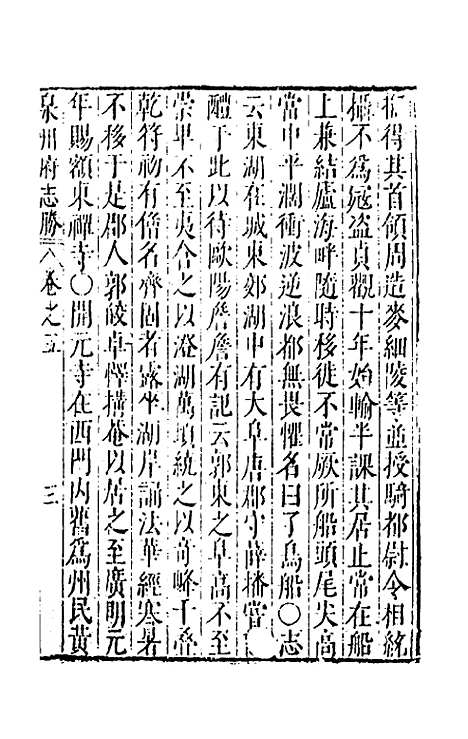 得其首領周造麥細陵等並授騎都尉令相統
攝不爲冦盗貞觀十年始輸半課其居止常在船
上兼結廬海畔隨時移徙不常厥所船頭尾尖高
當中平濶衝波逆浪都無畏懼名曰了鳥船〇志
云東湖在城東郊湖中有大阜唐郡守薛播嘗
醴于此以待歐陽詹詹有記云郭東之阜高不至
崇𤰞不至夷合之以澄湖萬頃統之以奇峰千叠
乾符初有僧名齊固者露坐湖岸誦法華經寒暑
不移于是郡人郭皎卓懌搆菴以居之至廣明元
年賜額東禪寺〇開元寺在西門内舊爲州民黃
泉州府志勝 卷之五 三